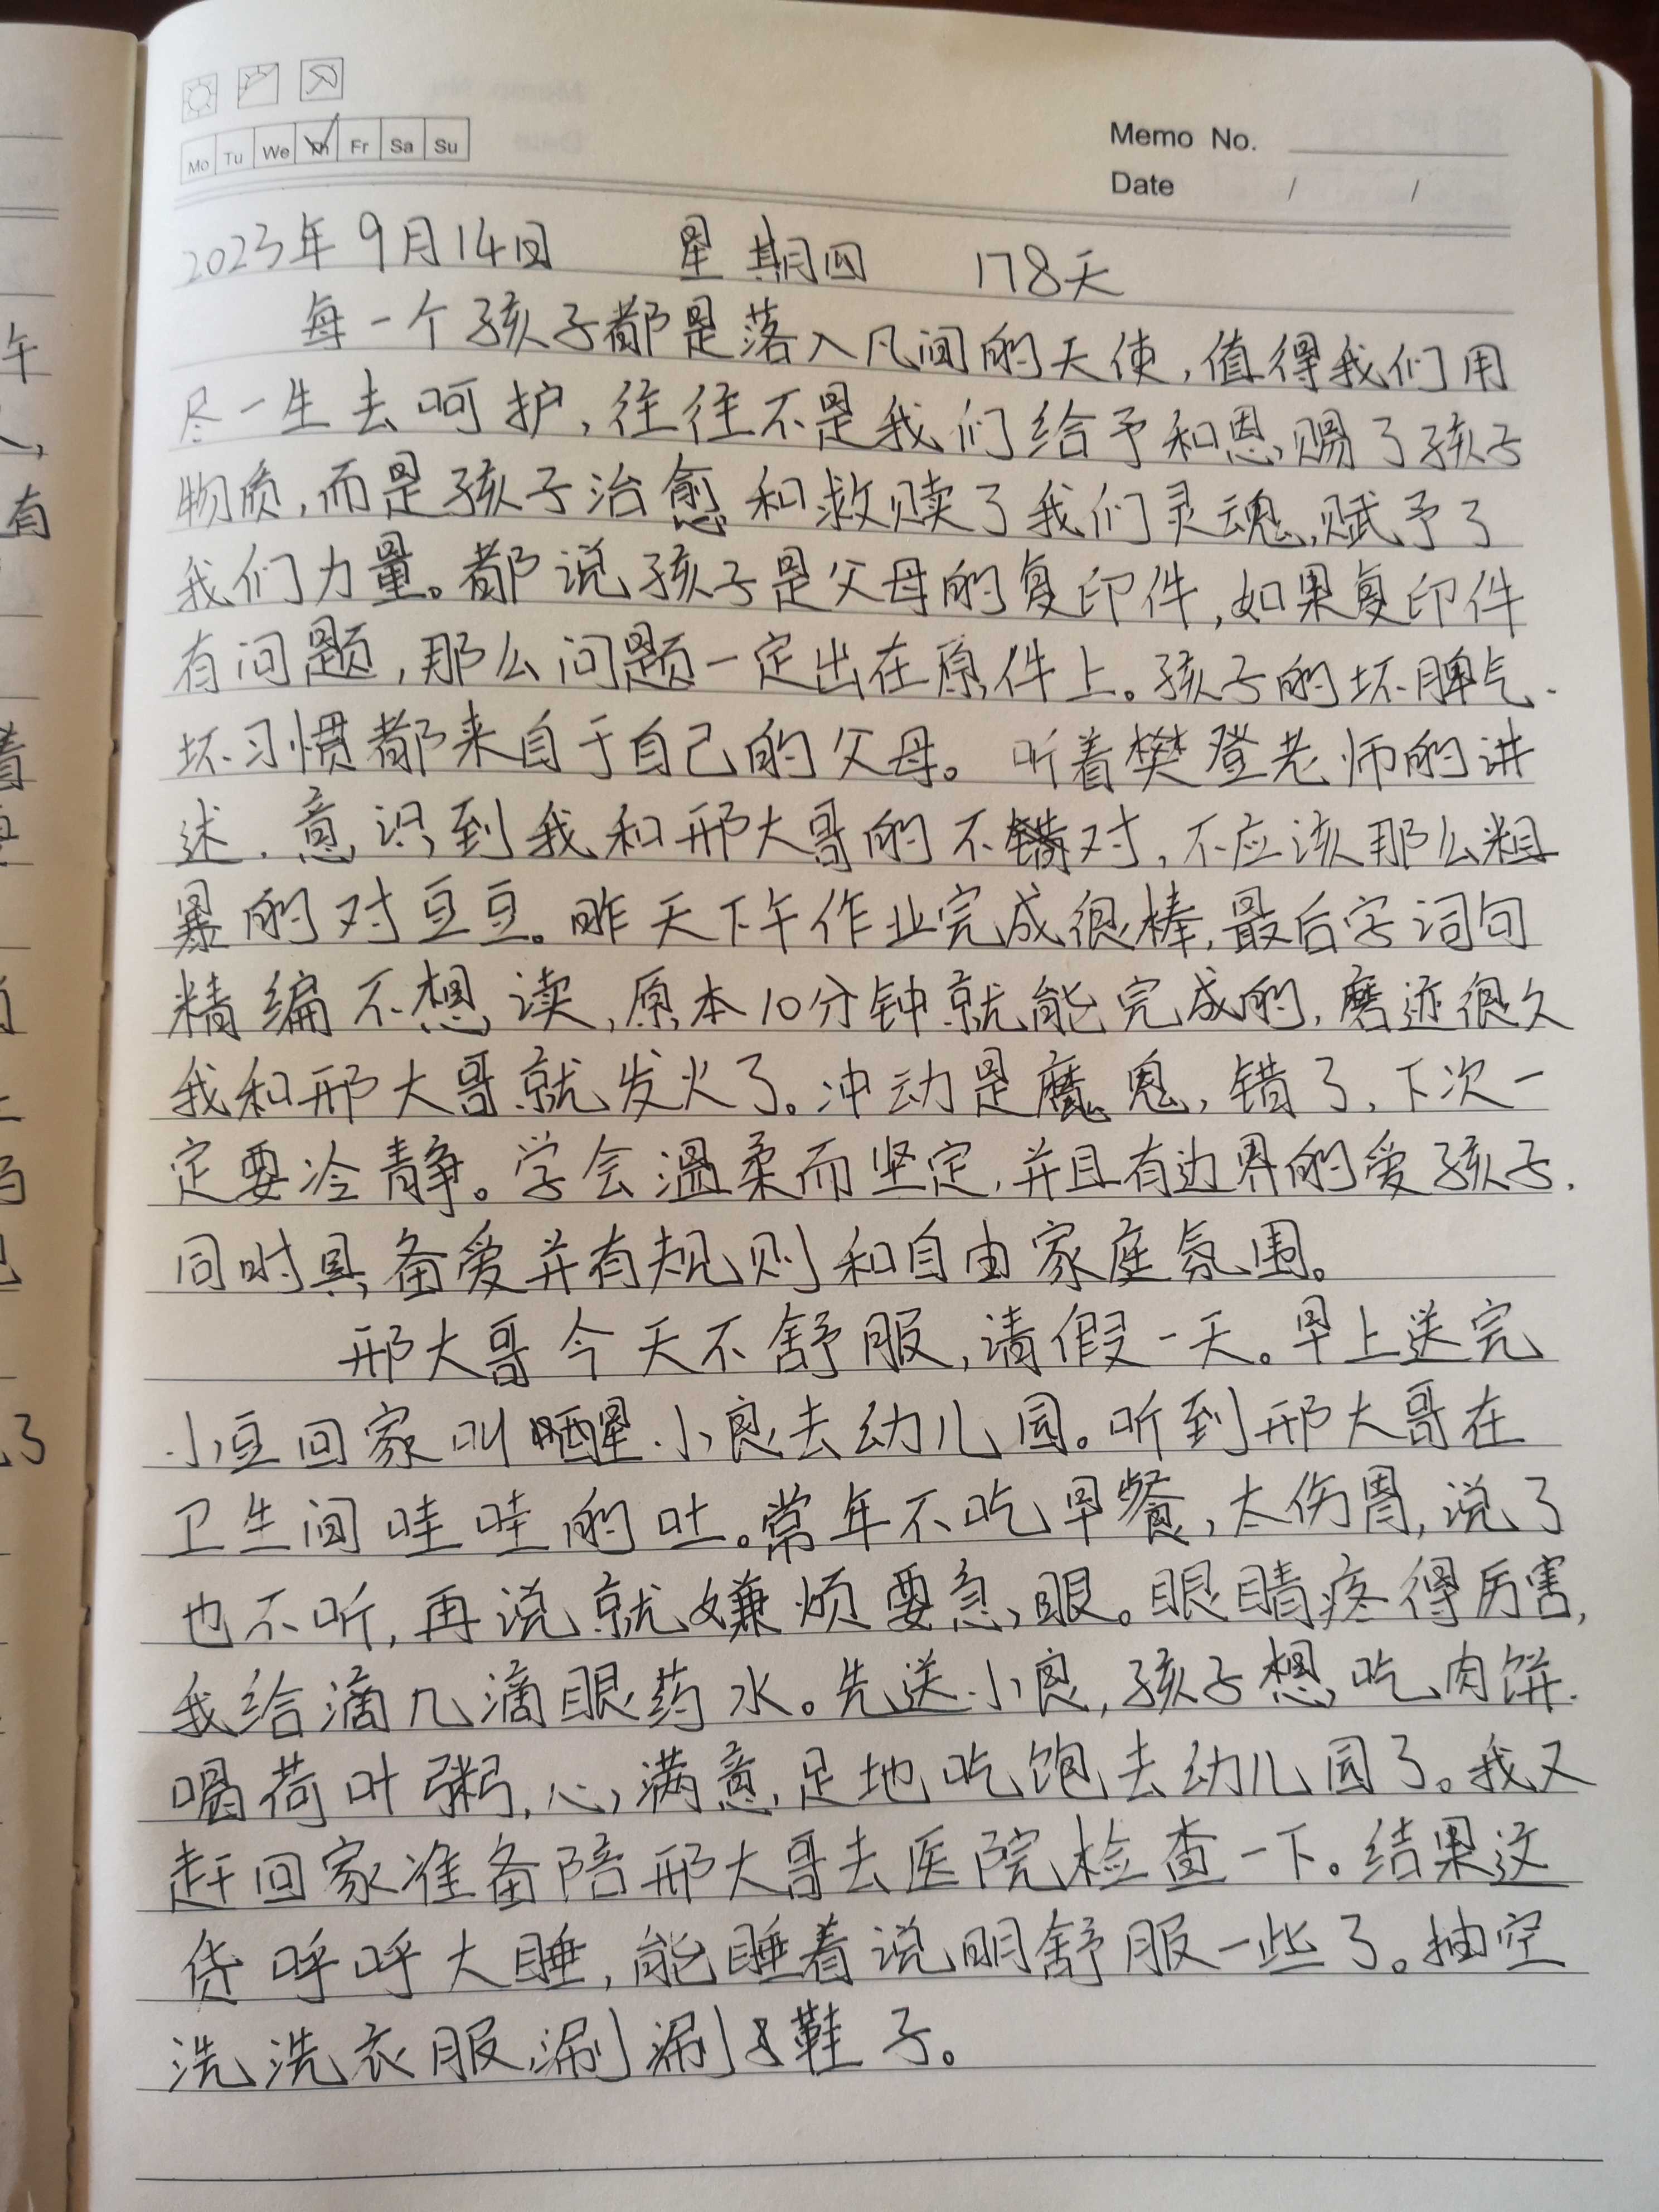 Mo Tu We Th Fr Sa Su
Memo No.
Date / /
2023年9月14日 星期四 178天
每一个孩子都是落入凡间的天使,值得我们用
尽一生去呵护,往往不是我们给予和恩赐了孩子
物质,而是孩子治愈和救赎了我们灵魂,赋予了
我们力量。都说孩子是父母的复印件,如果复印件
有问题,那么问题一定出在原件上。孩子的坏脾气.
坏习惯都来自于自己的父母。听着樊登老师的讲
述.意识到我和邢大哥的不对,不应该那么粗
暴的对豆豆。昨天下午作业完成很棒,最后字词句
精编不想读,原本10分钟就能完成的,磨迹很久
我和邢大哥就发火了。冲动是魔鬼,错了,下次一
定要冷静。学会温柔而坚定,并且有边界的爱孩子.
同时具备爱并有规则和自由家庭氛围。
邢大哥今天不舒服,请假一天。早上送完
小豆回家叫醒小良去幼儿园。听到邢大哥在
卫生间哇哇的吐。常年不吃早餐,太伤胃,说了
也不听,再说就嫌烦要急眼。眼睛疼得厉害,
我给滴几滴眼药水。先送小良,孩子想吃肉饼.
喝荷叶粥,心满意足地吃饱去幼儿园了。我又
赶回家准备陪邢大哥去医院检查一下。结果这
货呼呼大睡,能睡着说明舒服一些了。抽空
洗洗衣服,涮涮鞋子。
午
人,
有
着